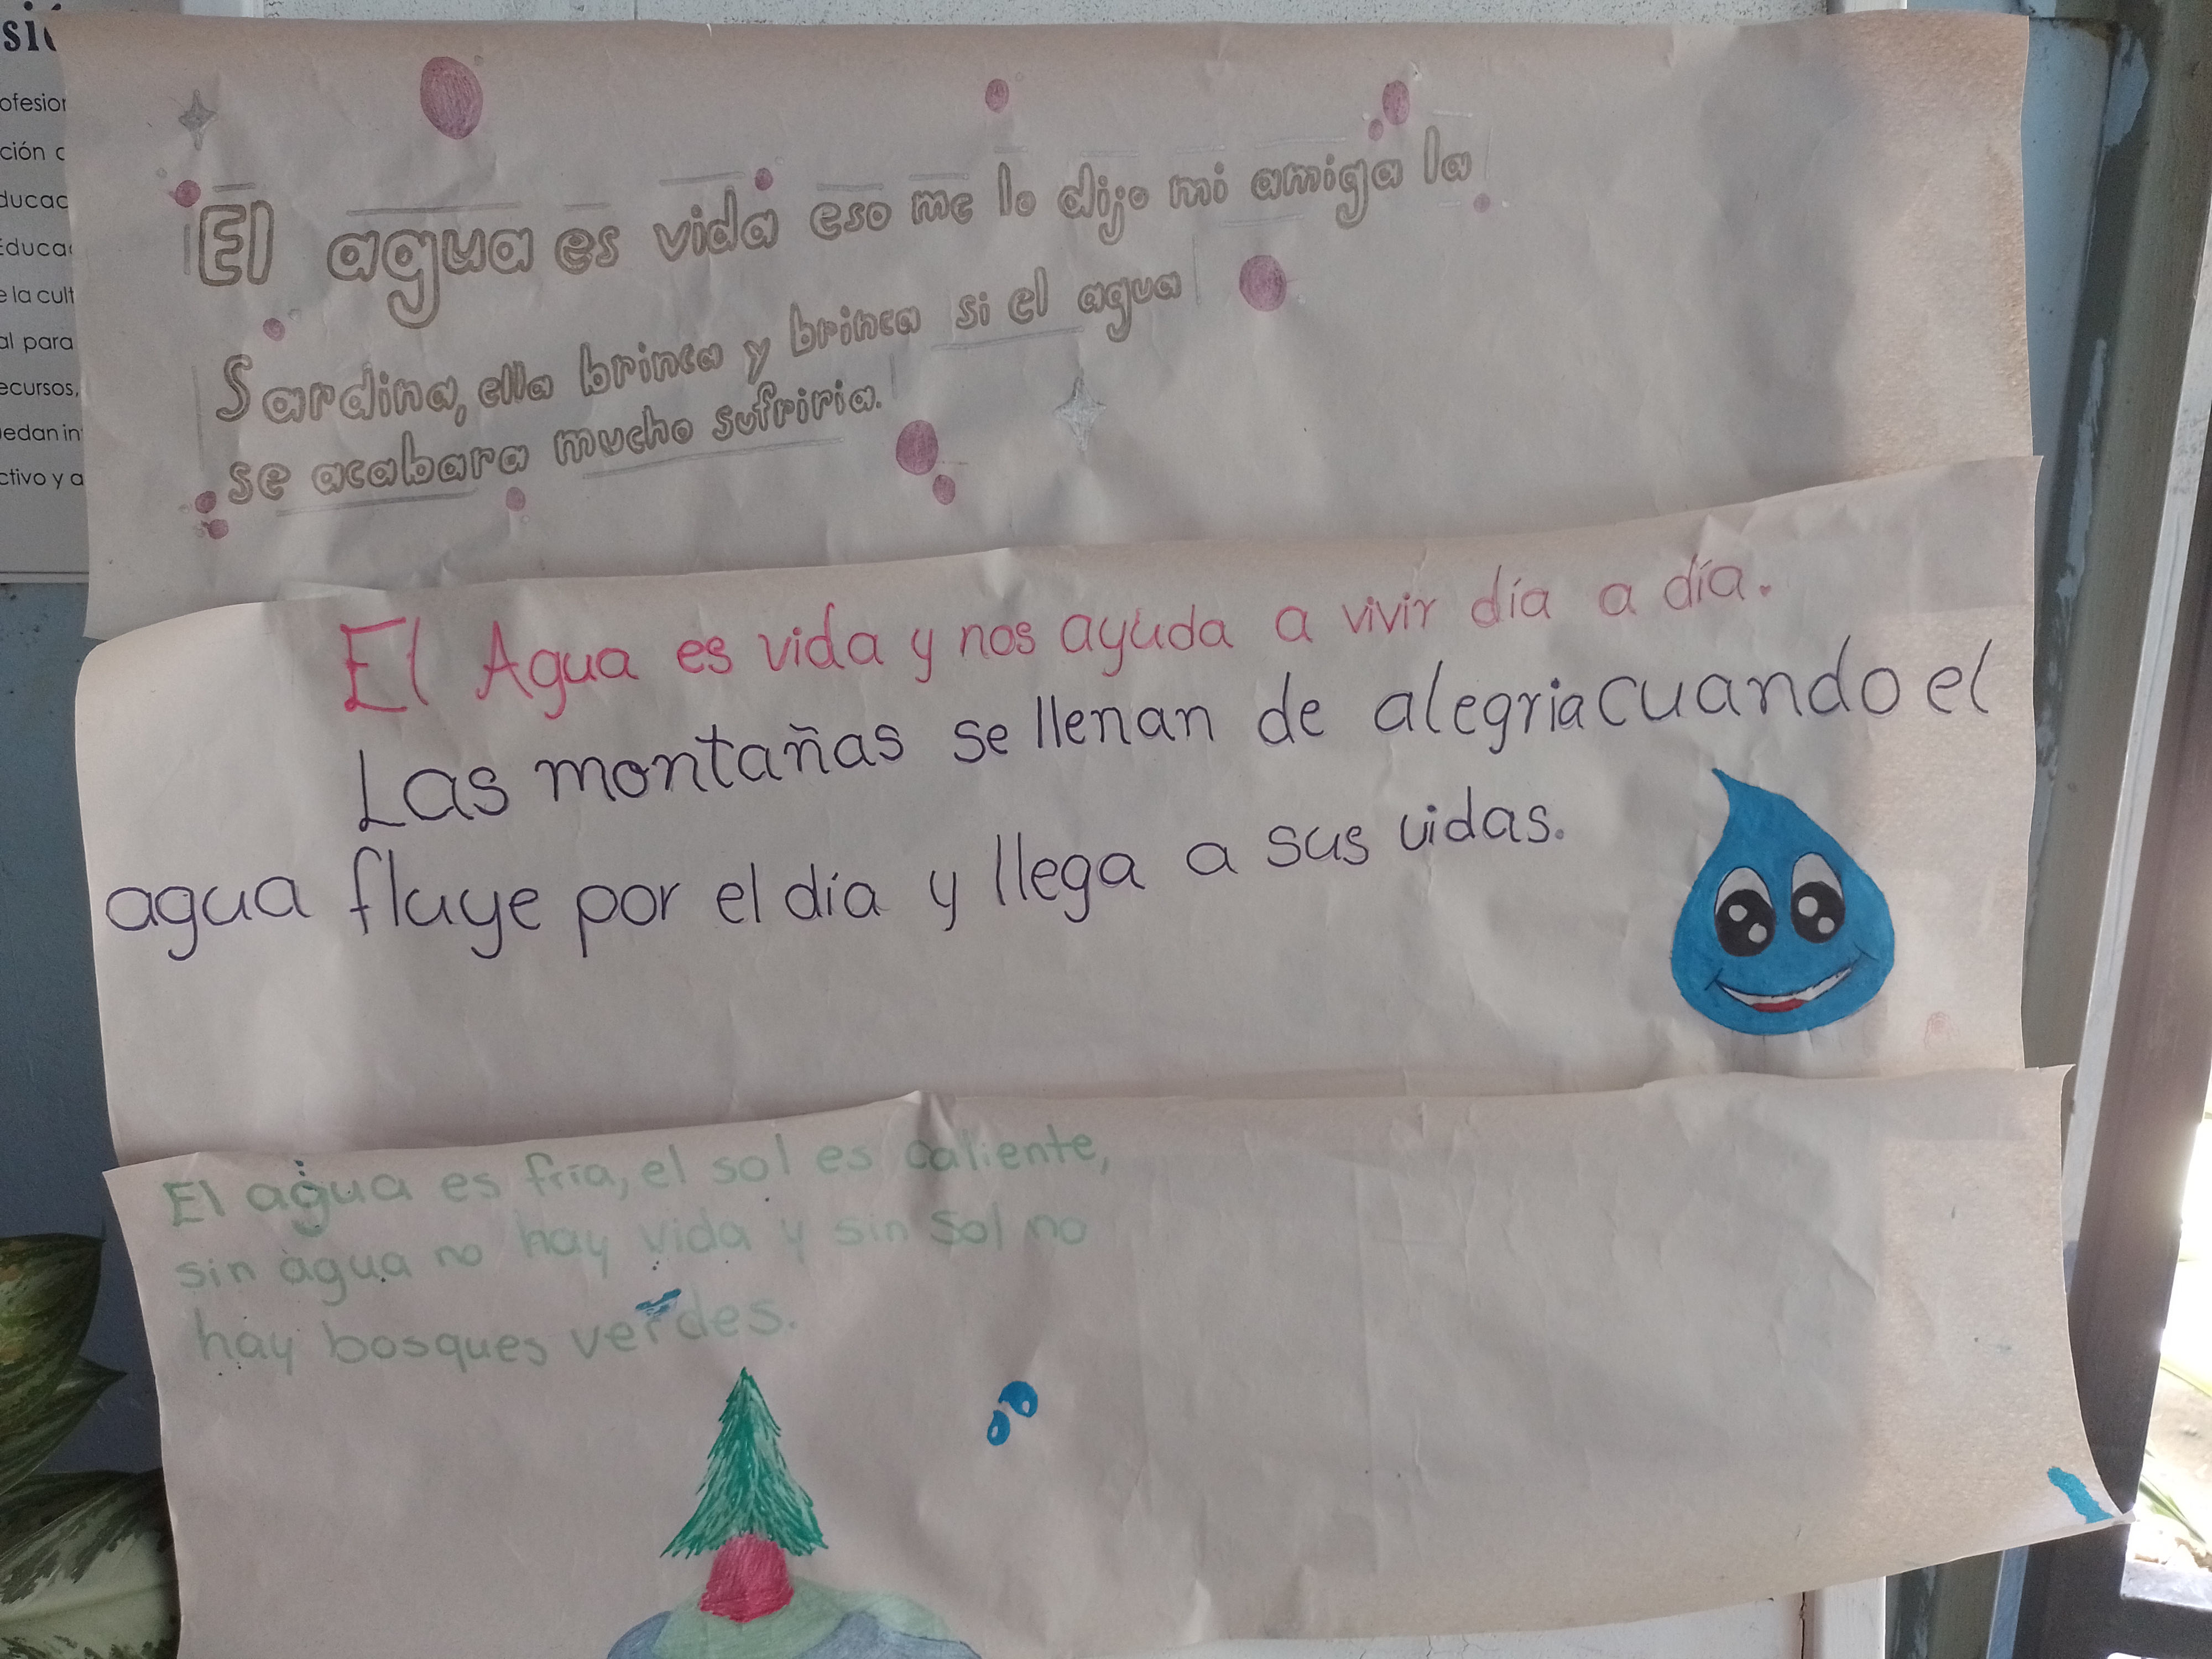 El agua es vida eso me lo dijo mi amiga la
Sardina, ella brinca y brinca si el agua
se acabara mucho sufriria.
El Agua es vida y nos ayuda a vivir día a día.
Las montañas se llenan de alegria cuando el
agua fluye por el día y llega a sus vidas.
El agua es fria, el sol es caliente,
sin agua no hay vida y sin Sol no
hay bosques verdes.